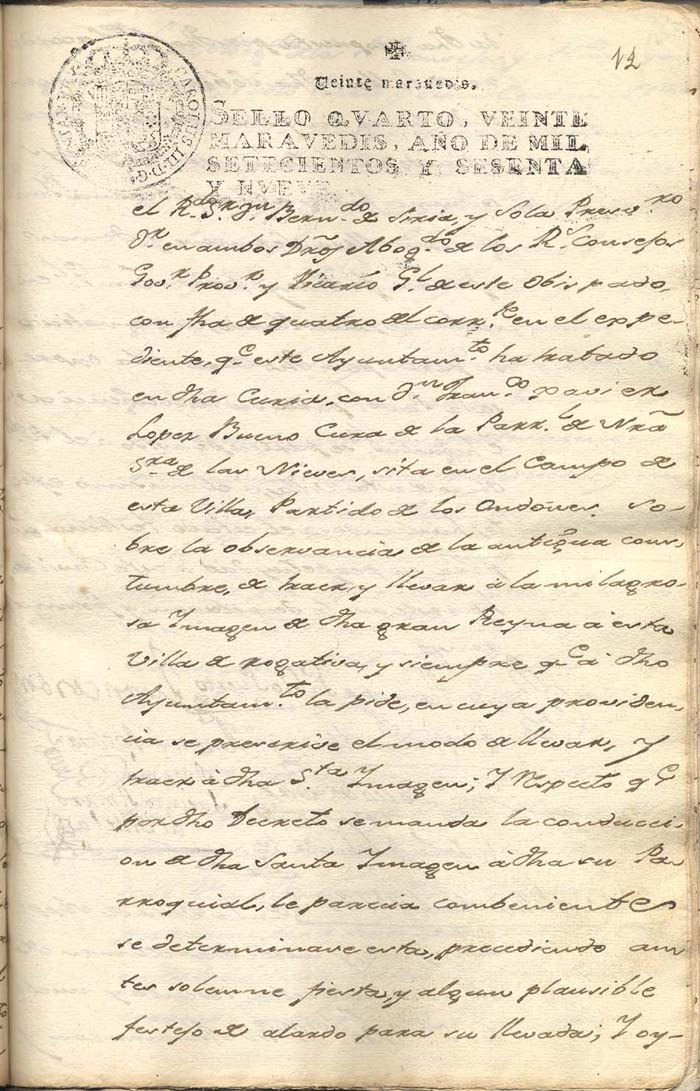 12
Veinte maravedis.
SELLO QVARTO, VEINTE
MARAVEDIS, AÑO DE MIL
SETECIENTOS Y SESENTA
Y NVEVE.
CAROLUS III. D. G.
el R.do S.r D.n Bern.do de Siria, y Sola Presv.ro
D.r en ambos Dros Abog.do de los R.s Consejos
Gov.r Prov.r y Vicario G.l de este Obispado,
con fha de quatro del corr.te en el expe-
diente, q.e este Ayuntam.to ha tratado
en dha Curia, con D.n Fran.co Xavier
Lopez Bueno Cura de la Parr.l de Nrã
Sra de las Nieves, sita en el Campo de
esta Villa, Partido de los Ondones. So-
bre la observancia de la antigua cons-
tumbre, de traer, y llevar à la milagro-
sa Imagen de dha gran Reyna à esta
Villa de rogativa, y siempre q.e à dho
Ayuntam.to la pide, en cuya providen-
cia se prescrive el modo de llevar, y
traer à dha S.ta Imagen; Y respecto q.e
por dho Decreto se manda la conducci-
on de dha Santa Imagen à dha su Pa-
rroquial, le parecia combeniente
se determinase esta, precediendo an-
tes solemne fiesta, y algun plausible
festejo de alardo para su llevada; Y oy-